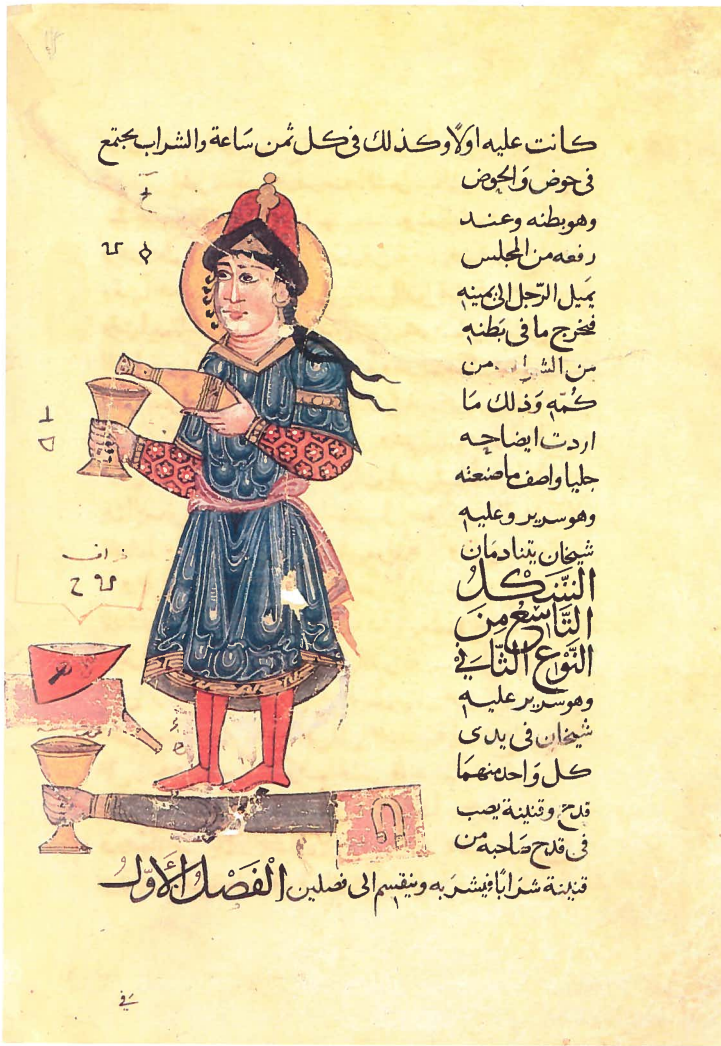 كانت عليه اولًا وكذلك فى كل ثمن ساعة والشراب يجتمع
فى حوض والحوض
وهو بطنه وعند
رفعه من المجلس
يميل الرّجل الى يمينه
فيخرج ما فى بطنه
من من
كُمّه وَذلك مَا
اردت ايضاحه
جليا واصف ما صنعته
وهو سرير وعليه
شيخان يتنادمَان
الشَّكلُ
التَّاسِعُ مِنَ
النَّوْع الثّانِي
وهو سرير عليه
شيخان فى يدى
كل وَاحد منهمَا
قدح وقنينة يصب
فى قدح صَاحبه من
قنينة شرَابًا فيشربه وينقسم الى فصلين الْفَصْلُ الْأَوّلُ
فِي